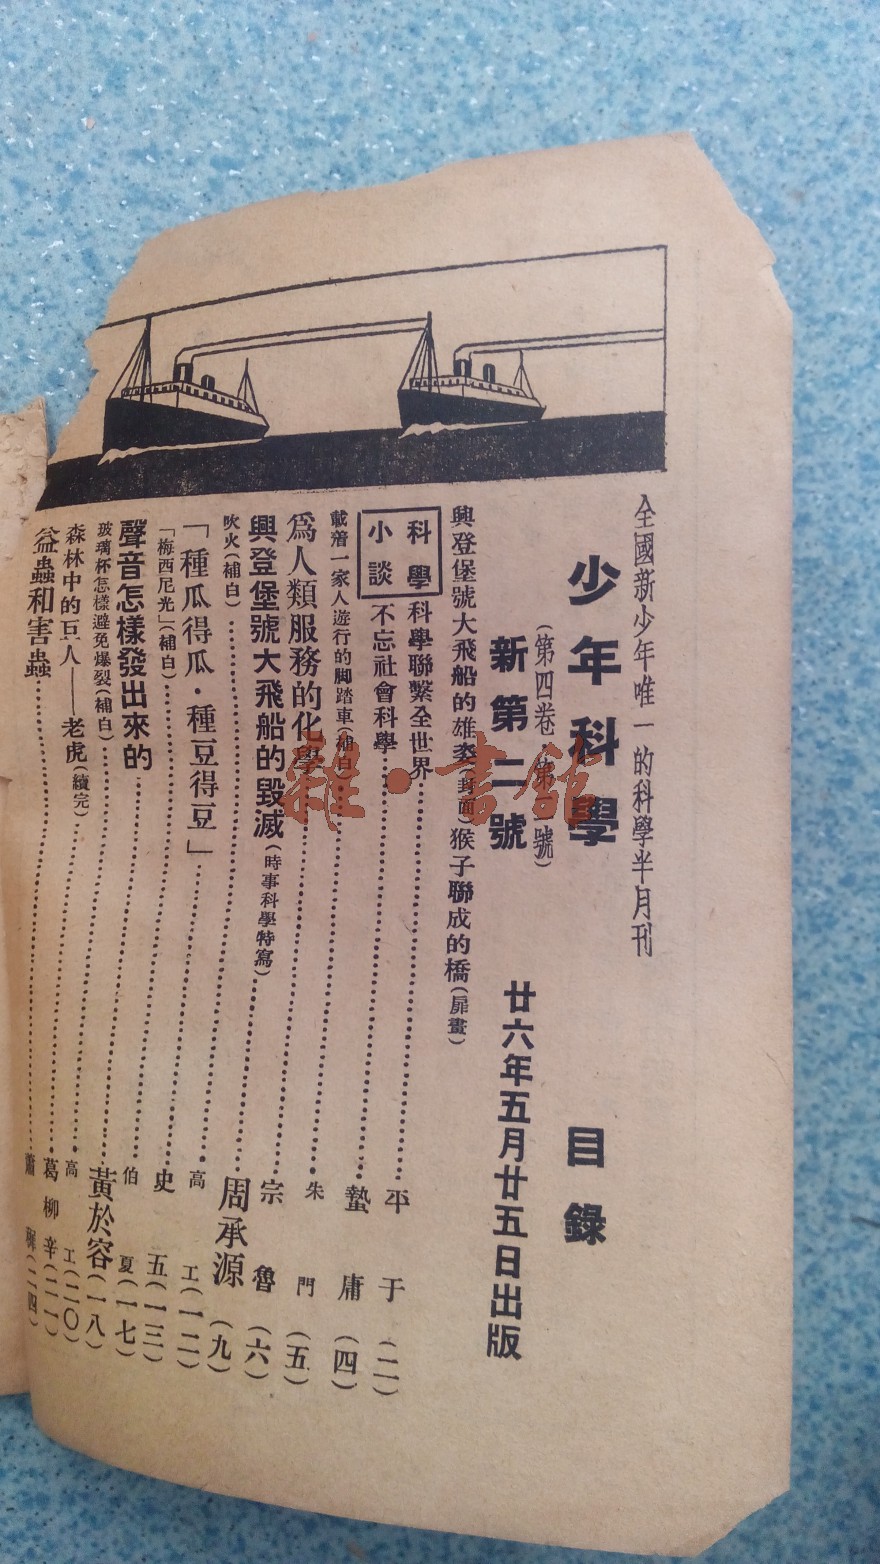 全國新少年唯一的科學半月刊
少年科學 目錄
(第四卷 第二號)
新第二號 廿六年五月廿五日出版
興登堡號大飛船的雄姿(封面)猴子聯成的橋(扉畫)
科學小談
科學聯繫全世界 平于(二)
不忘社會科學 蟄庸(四)
載着一家人遊行的脚踏車(補白) 朱門(五)
為人類服務的化學 宗魯(六)
興登堡號大飛船的毀滅(時事科學特寫) 周承源(九)
吹火(補白) 高工(一二)
「種瓜得瓜·種豆得豆」 史五(一三)
「梅西尼光」(補白) 伯夏(一七)
聲音怎樣發出來的 黃於容(一八)
玻璃杯怎樣避免爆裂(補白) 高工(二〇)
森林中的巨人——老虎(續完) 葛柳辛(二一)
益蟲和害蟲 (二四)
雜·書館